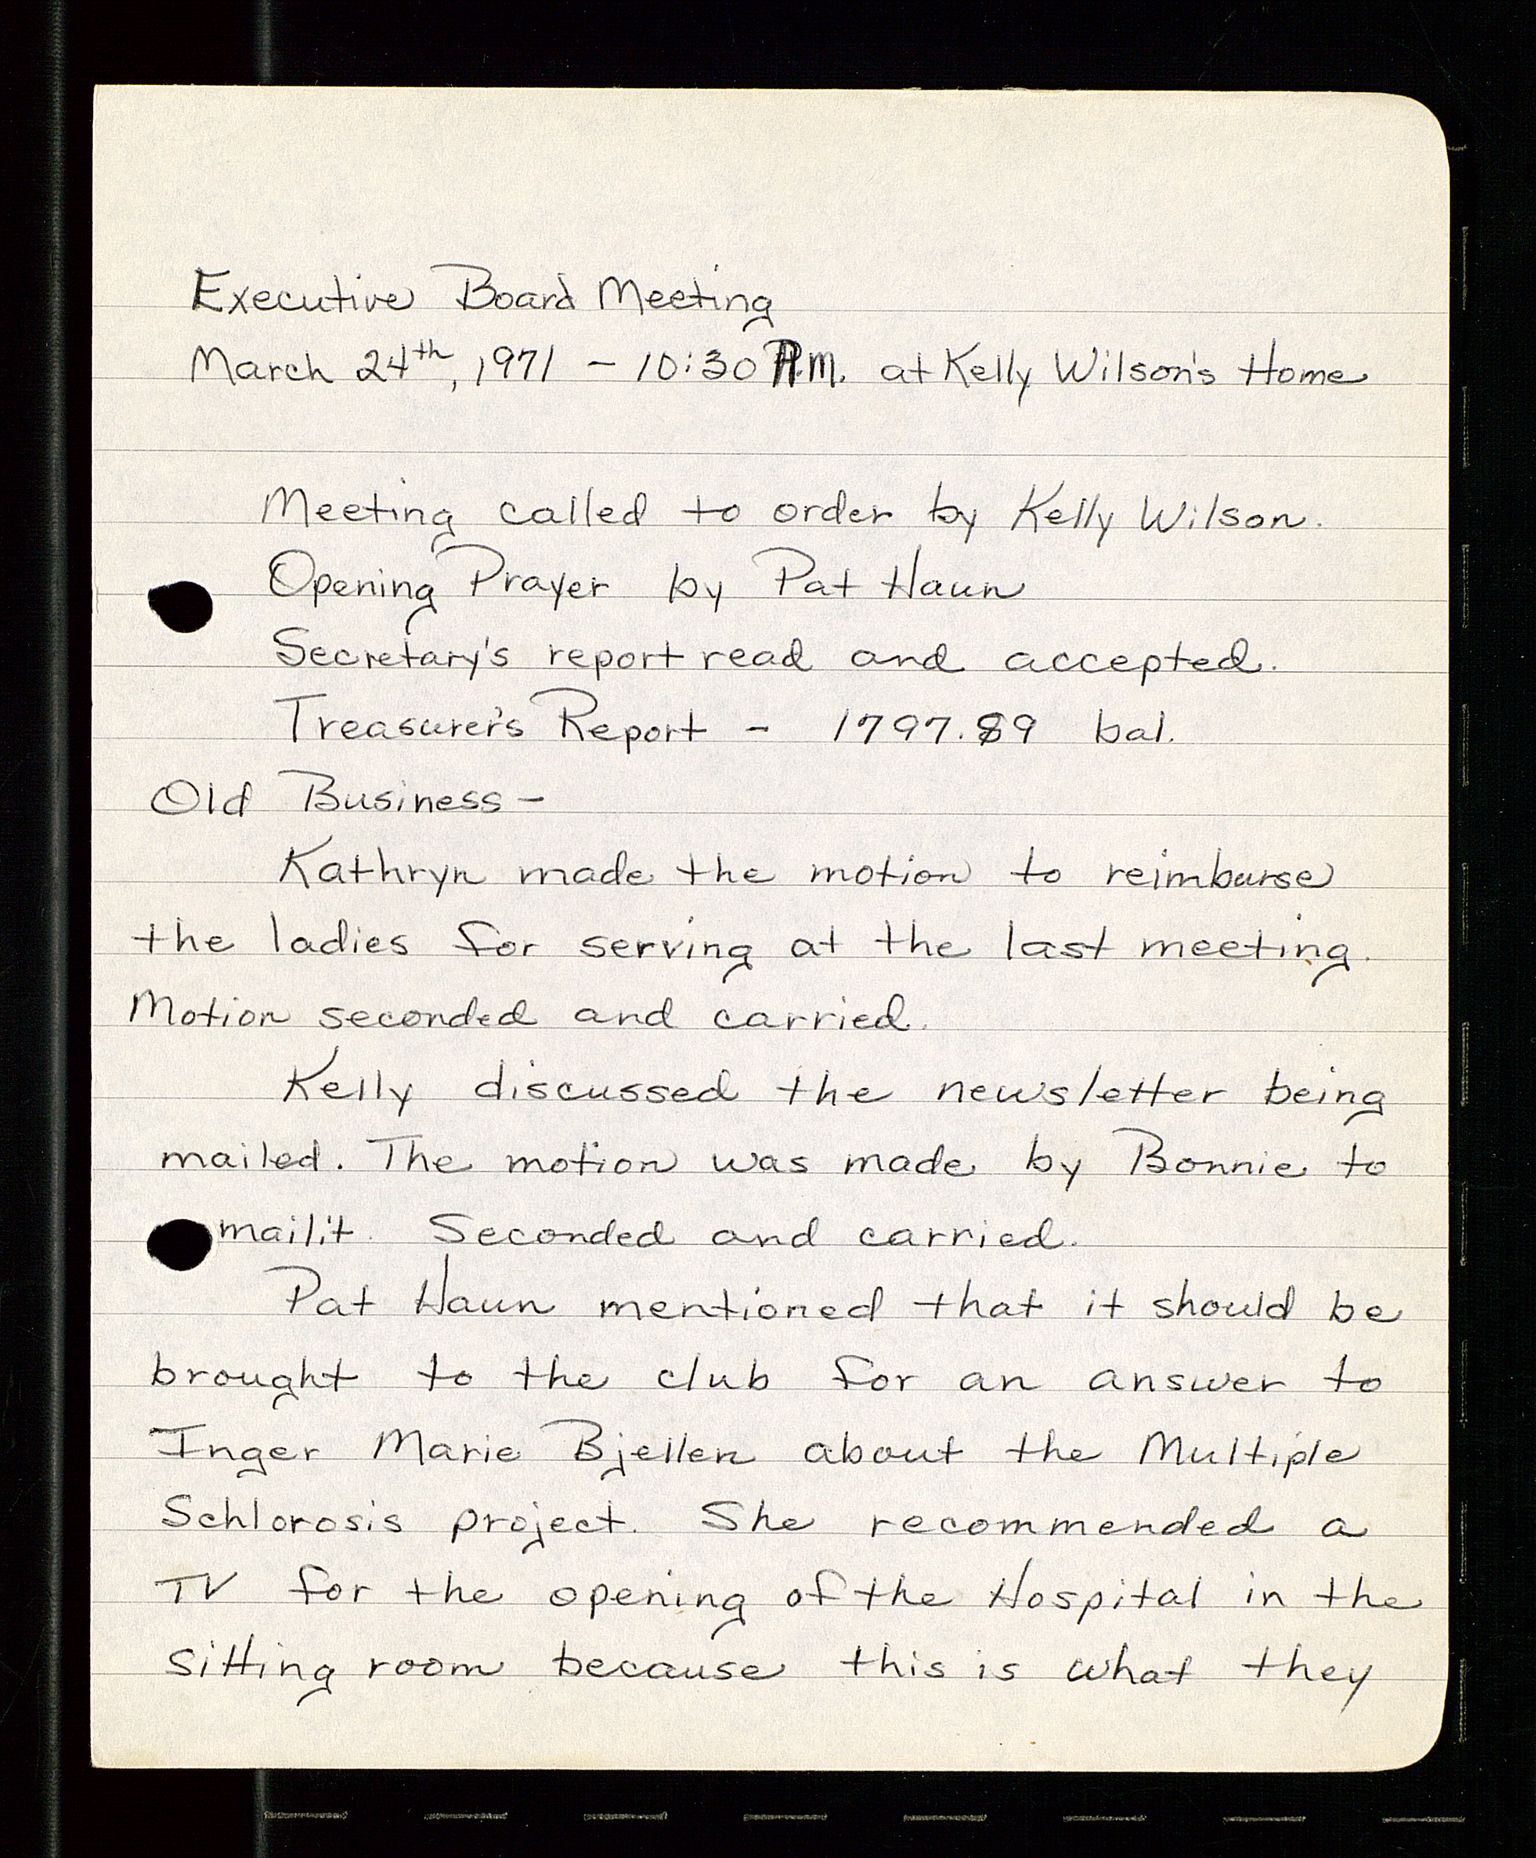 Executive Board Meeting
March 24th, 1971 - 10:30 A.M. at Kelly Wilson's Home
Meeting called to order by Kelly Wilson.
Opening Prayer by Pat Haun
Secretary's report read and accepted.
Treasurer's Report - 1797.89 bal.
Old Business -
Kathryn made the motion to reimburse
the ladies for serving at the last meeting.
Motion seconded and carried.
Kelly discussed the newsletter being
mailed. The motion was made by Bonnie to
mail it. Seconded and carried.
Pat Haun mentioned that it should be
brought to the club for an answer to
Inger Marie Bjellen about the Multiple
Schlorosis project. She recommended a
TV for the opening of the Hospital in the
sitting room because this is what they